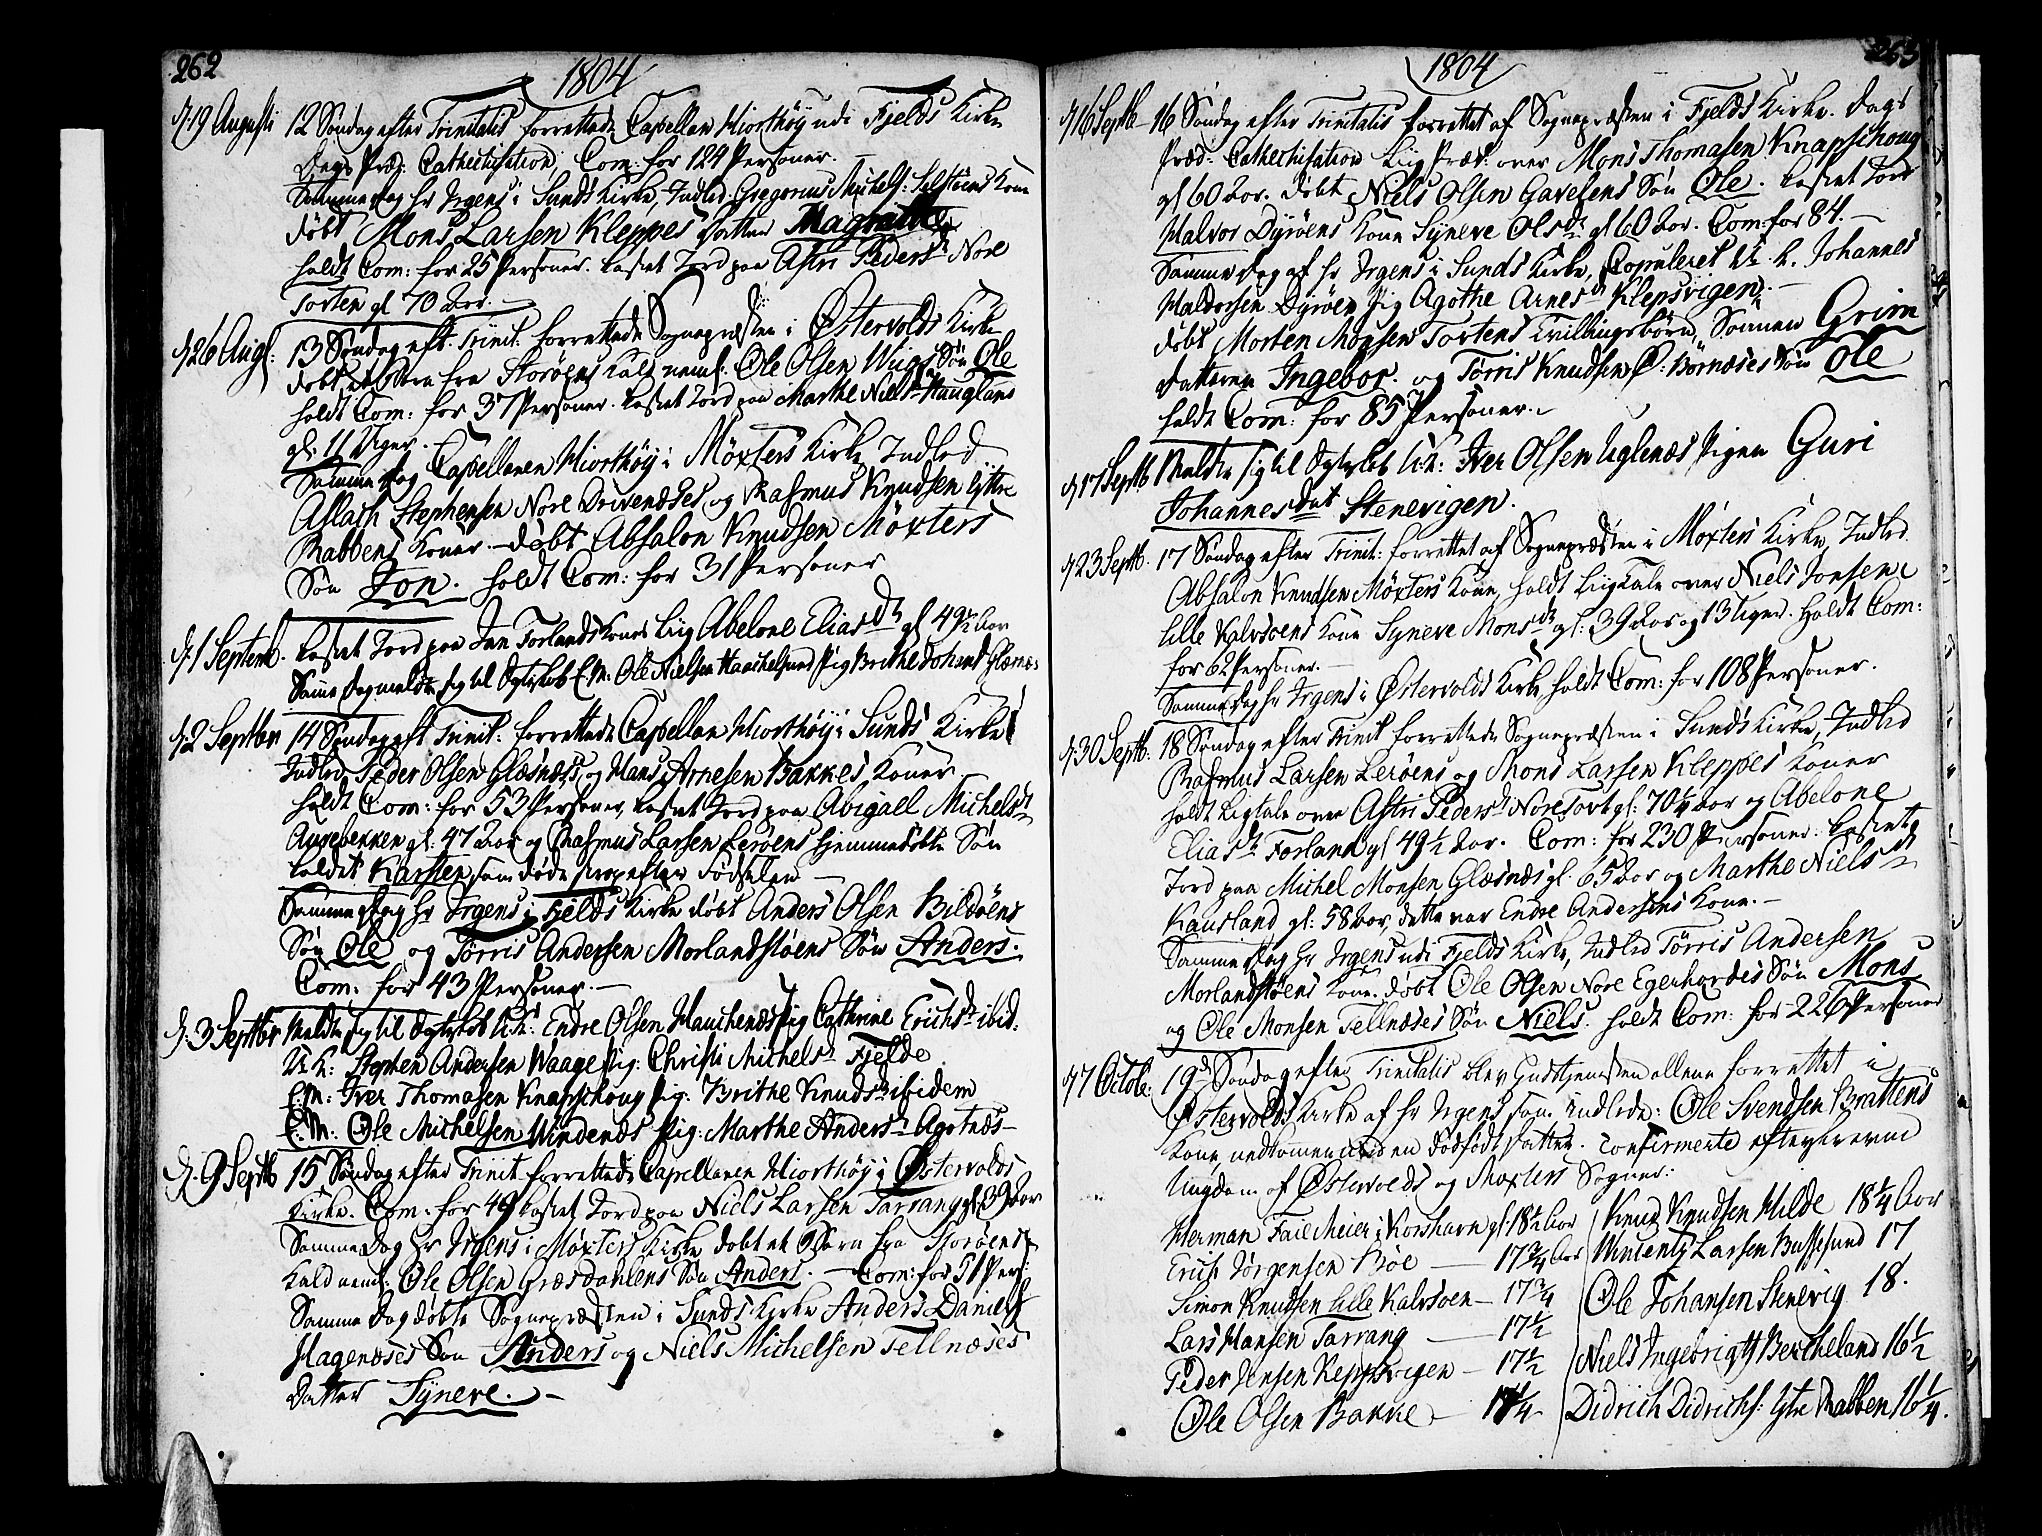 262
1804
d. 19 Augusti 12 Søndag efter Trinitatis forrettede Capellan Hiorthøy udi Fjelds Kirke
Dags Præd: Cathechisation, Com: for 124 Personer. —
Samme dag hr Irgens i Sunds Kirke, Indled: Gregorius Michels: Selstøens Kone
døbt Mons Larsen Kleppes datter Magrethe
holdt Com: for 25 Personer. kastet Jord paa Astri Pedersdr Nore
Torten gl 70 Aar. —
d. 26 Augs: 13 Søndag eft. Trinit. forrettede Sognepræsten i Østervolds Kirke
døbt et Barn fra Storøens Kald neml: Ole Olsen Wiigs Søn Ole
holdt Com: for 37 Personer. kastet Jord paa Marthe Nielsdr Hauglans
gl. 11 Uger. —
Samme dag Capellanen Hiorthøy i Møxters Kirke Indled
Aslach Stephensen Nore Drivenæses og Rasmus Knudsen Yttre
Rabbens Koner. — døbt Absalon Knudsen Møxters
Søn Jon. holdt Com: for 31 Personer
d. 1 Septemb. kastet Jord paa Jan Forlands Kones Liig Abelone Eliasdr gl 49½ Aar
Samme dag meldte sig til Ægteskab E.M: Ole Nielsen Haachelsund Pig Brithe Johansd Glæsnæ:
d. 2 Septbr 14 Søndag eft Trinit: forrettede Capellan Hiorthøy i Sunds Kirke
Indled Peder Olsen Glæsnæses og Hans Arnesen Bakkes Koner
holdt Com: for 53 Personer, kastet Jord paa Abigael Michelsdr
Angebekken gl: 47 Aar og Rasmus Larsen Lerøens hjemmedøbte Søn
kaldet Karsten som døde strax efter Fødselen —
Samme dag hr Irgens i Fjelds Kirke døbt Anders Olsen Bildøens
Søn Ole og Tørris Andersen Morlandstøens Søn Anders.
Com: for 43 Personer. —
d. 3 Septbr Meldte sig til Ægteskab U.K: Endre Olsen Hauchenæs Pig Cathrine Erichsdr ibid:
U.K: Stephen Andersen Waage Pig: Christi Michelsdr Fjelde
E.M: Iver Thomasen Knapschoug Pig: Brithe Knudsdr ibidem
E.M: Ole Michelsen Windenæs Pig: Marthe Andersdr Agotnæs —
d. 9 Septb 15 Søndag efter Trinit forrettede Capellanen Hiorthøy i Østervolds
Kirke. Com: for 49 kastet Jord paa Niels Larsen Tarrang gl: 39 Aar
Samme dag hr Irgens i Møxters Kirke døbt et Barn fra Storøens
Kald neml: Ole Olsen Græsdahlens Søn Anders. — Com: for 51 Pers:
Samme dag døbte Sognepræsten i Sunds Kirke Anders Daniels:
Hagenæses Søn Anders og Niels Michelsen Tellnæses
datter Syneve. —
263
1804
d. 16 Septb 16 Søndag efter Trinitatis forrettet af Sognepræsten i Fjelds Kirke. Dags
Præd: Cathechisation Liig Præd: over Mons Thomasen Knapschoug
gl 60 Aar. døbt Niels Olsen Gavelens Søn Ole. kastet Jord
Halvor Dyrøens Kone Syneve Olsdr gl 60 Aar. Com: for 84. —
Samme dag af hr Irgens i Sunds Kirke, Copuleret U. K. Johannes
Haldorsen Dyrøen Pig Agothe Arnesdr Klepsvigen. —
døbt Morten Monsen Tortens Tvillingsbørn, Sønnen Grim
datteren Ingebor. og Tørris Knudsen Ø: Børnæses Søn Ole
holdt Com: for 85 Personer. —
d. 17 Septb Meldte sig til Ægteskab U.K: Iver Olsen Uglenæs Pigen Guri
Johannesdat Stenevigen.
d. 23 Septb. 17 Søndag efter Trinit: forrettet af Sognepræsten i Møxters Kirke Indled
Absalon Knudsen Møxters Kone, holdt Liigtale over Niels Jonsens
Lille Kalvsøens Kone Syneve Monsdr gl: 39 Aar og 13 Uger. Holdt Com:
for 62 Personer. —
Samme dag hr Irgens i Østervolds Kirke holdt Com: for 108 Personer.
d. 30 Septb. 18 Søndag efter Trinit forrettede Sognepræsten i Sunds Kirke, Indled
Rasmus Larsen Lerøens og Mons Larsen Kleppes Koner
holdt Ligtale over Astri Pedersdr Nore Tort gl: 70¼ Aar og Abelone
Eliasdr Forland gl 49½ Aar. Com: for 230 Personer. kastet
Jord paa Michel Monsen Glæsnæs gl. 65 Aar og Marthe Nielsdr
Kausland gl: 58 Aar, dette var Endre Andersens Kone. —
Samme dag hr Irgens udi Fjelds Kirke, Indled Tørris Andersen
Morlandstøens Kone. døbt Ole Olsen Nore Egerhordes Søn Mons
og Ole Monsen Tellnæses Søn Niels. holdt Com: for 226 Personer
d. 7 Octob: 19de Søndag efter Trinitatis blev Gudstjenesten allene forrettet i
Østervolds Kirke af hr Irgens som Indlede: Ole Svendsen Brattens
Kone, nedkommen med en dødfødt datter. Confirmerte efterskrevne
Ungdom af Østervolds og Møxters Sogner:
Herman Faie Meier i Korshavn gl: 18½ Aar
Erich Jørgensen Bøe — 17¾ Aar
Simon Knudsen Lille Kalvsøen — 17¾
Lars Hansen Tarrang — 17½
Peder Jensen Keppsvigen — 17½
Ole Olsen Bakke — 17¼
Knud Knudsen Hilde 18¼ Aar
Wintentz Larsen Bussesund 17
Ole Johansen Stenevig 18.
Niels Ingebrigts Bercheland 16½
Didrich Didrichs: Ytre Rabben 16¼.